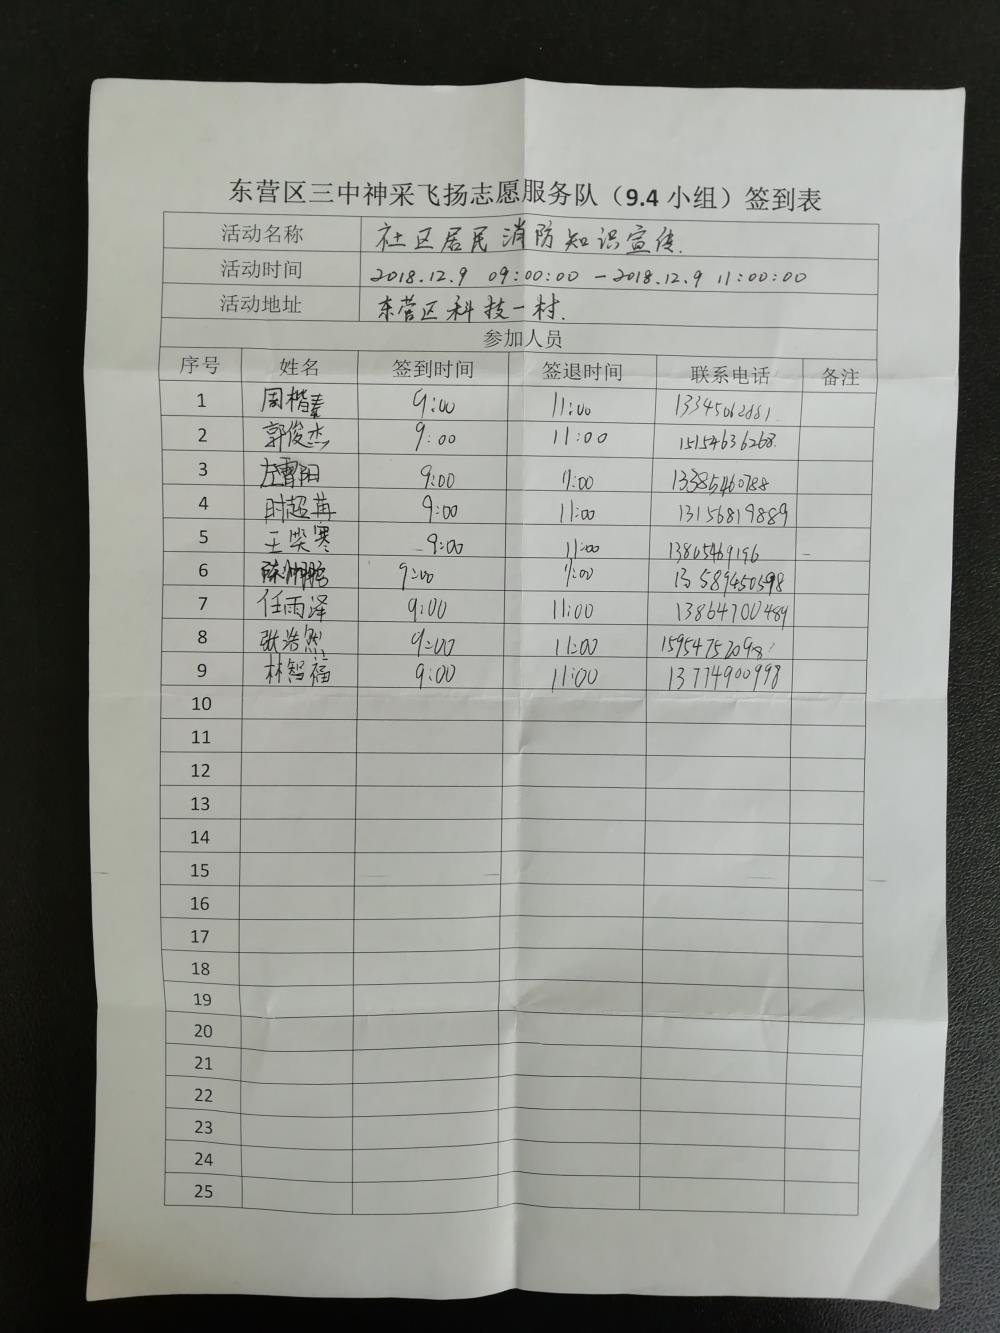 东营区三中神采飞扬志愿服务队（9.4 小组）签到表
活动名称 社区居民消防知识宣传.
活动时间 2018.12.9 09:00:00 —2018.12.9 11:00:00
活动地址 东营区科技一村.
参加人员
序号 姓名 签到时间 签退时间 联系电话 备注
1 周楷 9:00 11:00
2 郭俊杰 9:00 11:00 15154636268.
3 左霄阳 9:00 11:00 13385460788
4 时超 9:00 11:00 13156819889
5 王笑寒 9:00 11:00 13805469196
6 陈帅鹏 9:00 11:00 13589450598
7 任雨泽 9:00 11:00 13864700489
8 张浩然 9:00 11:00 15954752098
9 林智福 9:00 11:00 13774900998
10
11
12
13
14
15
16
17
18
19
20
21
22
23
24
25